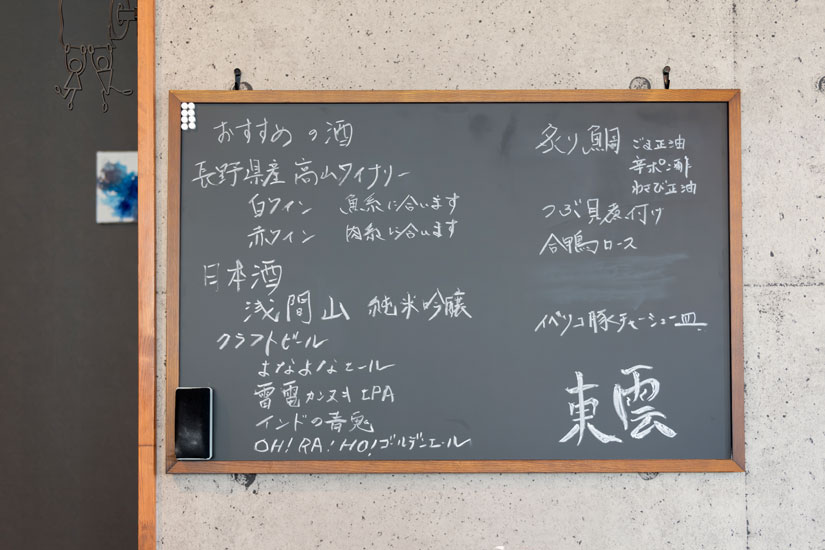 おすすめの酒
長野県産 高山ワイナリー
白ワイン 魚系に合います
赤ワイン 肉系に合います
日本酒
浅間山 純米吟醸
クラフトビール
よなよなエール
雷電カンヌキIPA
インドの青鬼
OH!RA!HO!ゴールデンエール
炙り鯛 ごま正油
辛ポン酢
わさび正油
つぶ貝煮付け
合鴨ロース
イベリコ豚チャーシュー皿
東雲